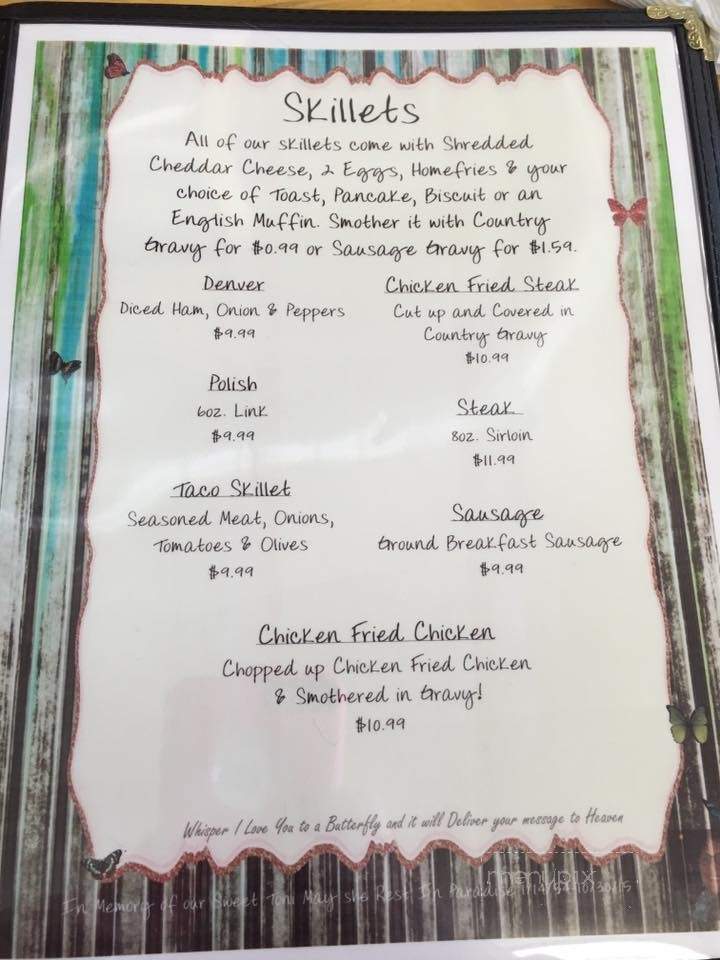 Skillets
All of our skillets come with Shredded
Cheddar Cheese, 2 Eggs, Homefries & your
choice of Toast, Pancake, Biscuit or an
English Muffin. Smother it with Country
Gravy for $0.99 or Sausage Gravy for $1.59.
Denver
Diced Ham, Onion & Peppers
$9.99
Polish
6oz. Link
$9.99
Taco Skillet
Seasoned Meat, Onions,
Tomatoes & Olives
$9.99
Chicken Fried Steak
Cut up and Covered in
Country Gravy
$10.99
Steak
8oz. Sirloin
$11.99
Sausage
Ground Breakfast Sausage
$9.99
Chicken Fried Chicken
Chopped up Chicken Fried Chicken
& Smothered in Gravy!
$10.99
Whisper I Love You to a Butterfly and it will Deliver your message to Heaven
menupix
In Memory of our Sweet Toni May she Rest In Paradise